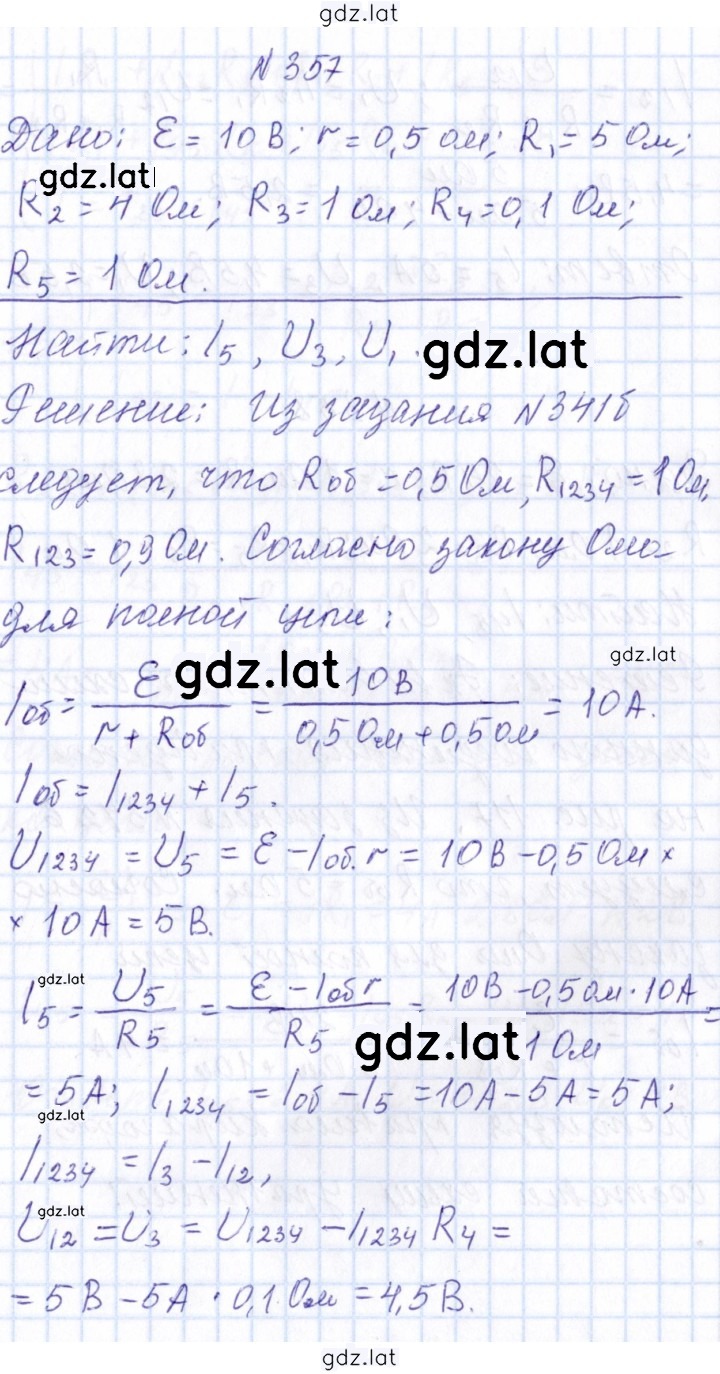 gdz.lat
N 357
Дано: Ɛ = 10 В; r = 0,5 ом; R₁ = 5 Ом;
gdz.lat
R₂ = 4 Ом; R₃ = 1 Ом; R₄ = 0,1 Ом;
R₅ = 1 Ом.
Найти: I₅, U₃, U₁.
gdz.lat
Решение: Из задания N 341б
следует, что Rоб = 0,5 Ом, R₁₂₃₄ = 1 Ом,
R₁₂₃ = 0,9 Ом. Согласно закону Ома
для полной цепи:
gdz.lat
gdz.lat
Iоб = Ɛ / (r + Rоб) = 10 В / (0,5 Ом + 0,5 ом) = 10 А.
Iоб = I₁₂₃₄ + I₅.
U₁₂₃₄ = U₅ = Ɛ – Iоб. r = 10 В – 0,5 Ом ×
× 10 А = 5 В.
gdz.lat
I₅ = U₅ / R₅ = (Ɛ – Iоб r) / R₅ = (10 В – 0,5 ом · 10 А) / 1 Ом =
gdz.lat
= 5 А; I₁₂₃₄ = Iоб – I₅ = 10 А – 5 А = 5 А;
gdz.lat
I₁₂₃₄ = I₃ – I₁₂,
gdz.lat
U₁₂ = U₃ = U₁₂₃₄ – I₁₂₃₄ R₄ =
= 5 В – 5 А · 0,1 Ом = 4,5 В.
gdz.lat